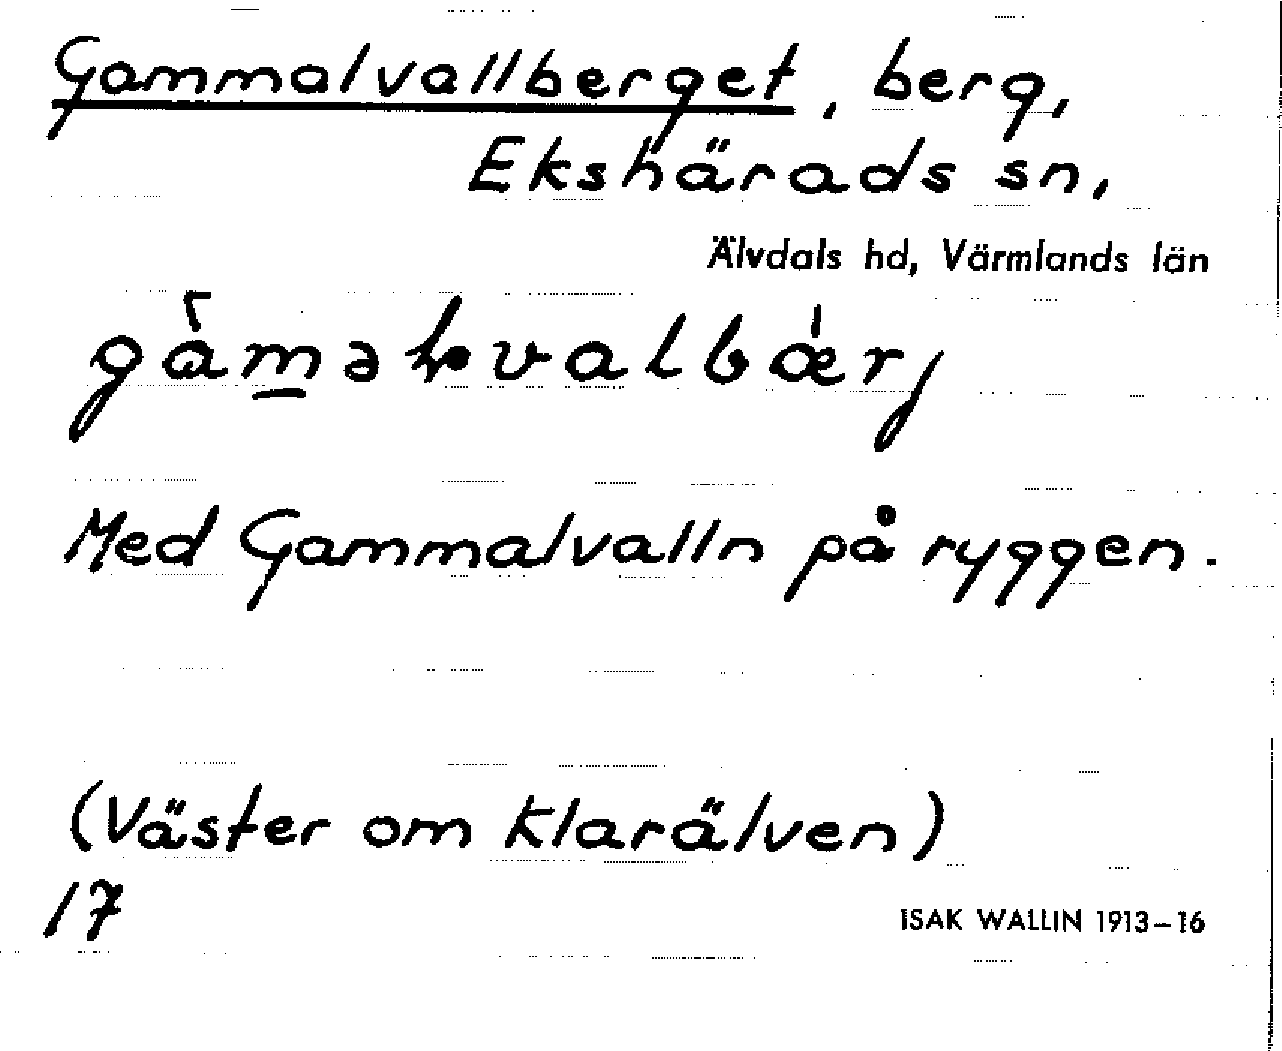 Gammalvallberget, berg,
Ekshärads sn,
Älvdals hd, Värmlands län
Med Gammalvalln på ryggen.
(Väster om Klarälven)
17
ISAK WALLIN 1913–16